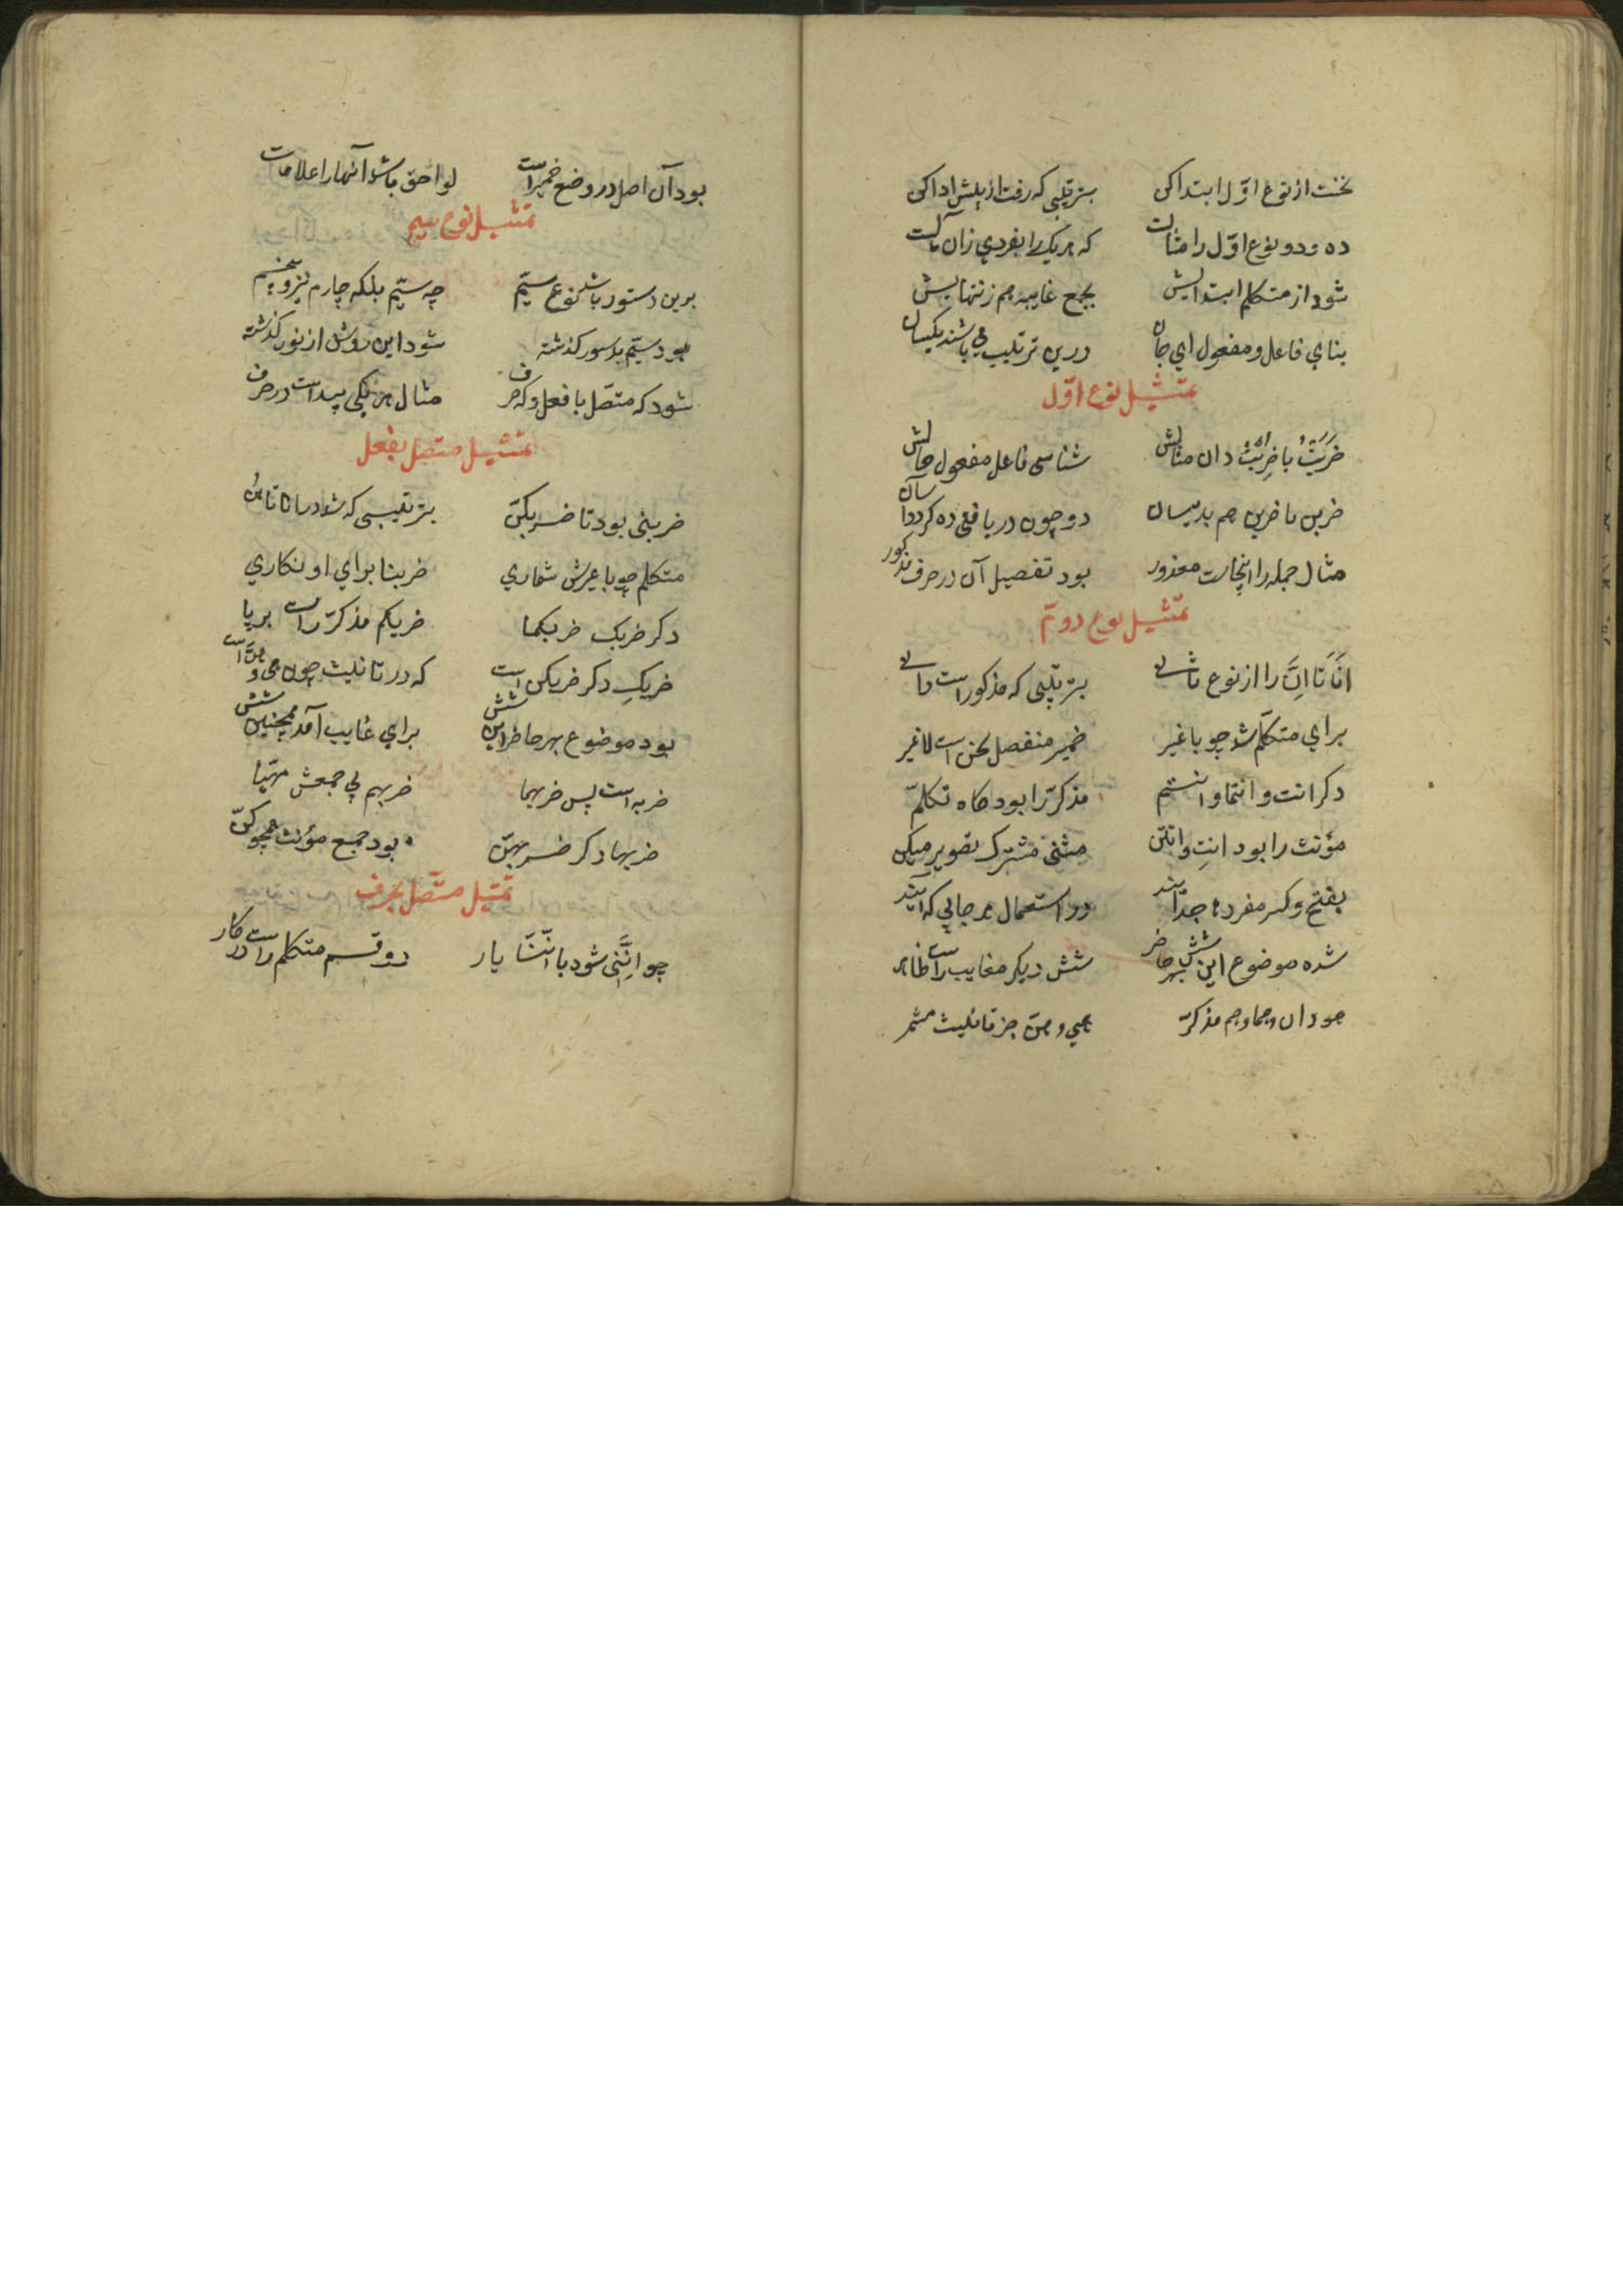 نخست از نوع اوّل ابتدا کن بترتیبی که رفت از پیش ادا کن
ده و دو نوع اوّل را مثالست که هریک را بفردی زان مآلست
شود از متکلم ابتدایش بجمع غایبه هم ز انتهایش
بنای فاعل و مفعول ای جان درین ترتیب می باشند یکسان
تمثیل نوع اوّل
ضَرَبْتُ با ضُرِبْتُ دان مثالش شناسی فاعل مفعول حالش
ضربن با ضربن هم بدینسان دو چون دریافتی ده کردد آسان
مثال جمله را اینجاست معذور بود تفصیل آن در صرف مذکور
تمثیل نوع دوم
اَنَا تا اِنَّ را از نوع ثانی بترتیبی که مذکور است دانی
برای متکلّم شد چو با غیر ضمیر منفصل نحن است لاغیر
دکر انت و انتما و انتم مذکّر را بود کاه تکلّم
مؤنث را بود انتِ و انتن مثنی مشترک تصویر میکن
بفتح و کسر مفردها جدا اند در استعمال هر جایی که آیند
شده موضوع این شش بهر حاضر شش دیکر مغایب راست ظاهر
هو دان و هما و هم مذکّر هی و هنّ جز تانیث مشمر
بود آن اصل در وضع ضمیر است لواحق باشد آنها را علامات
تمثیل نوع سیم
برین دستور باشد نوع سیّم چه سیّم بلکه چارم نیز و پنجم
بود سیّم بدستور کذشته شود این روش از نور کذشته
شود که متصّل با فعل و که حرف مثال هر یکی پیداست در صرف
تمثیل متصل بفعل
ضربنی بود تا ضربکنّ بترتیبی که شد در انا تا هنّ
متکلم چو با غیرش شماری ضربنا برای او نکاری
دکر ضربک ضربکما ضربکم مذکّر راست برپا
ضربکِ دکر ضربکن است که در تانیث چون هی و هنّ است
بود موضوع بهر حاضر این شش برای غایب آمد همچنین شش
ضربه است پس ضربهما ضربهم پی جمعش مهیّا
ضربها دکر ضربهنّ بود جمع مؤنث همچو کنّ
تمثیل متصّل بحرف
چو اِنَّنی شود با اِنَّنا یار دو قسم متکلم راست در کار